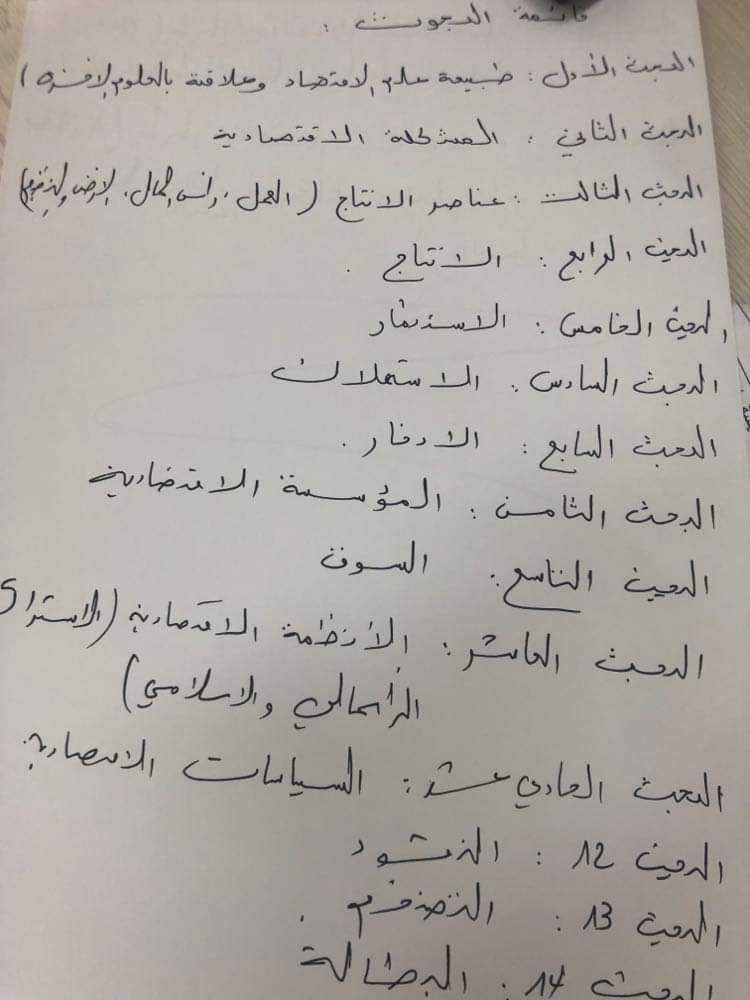 قائمة البحوث :
البحث الأول : طبيعة علم الاقتصاد وعلاقة بالعلوم الاخرى )
البحث الثاني : المشكلة الاقتصادية
البحث الثالث : عناصر الانتاج ( العمل ، رأس المال ، الارض والتنظيم )
البحث الرابع : الانتاج .
البحث الخامس : الاستثمار
البحث السادس : الاستهلاك
البحث السابع : الادخار .
البحث الثامن : المؤسسة الاقتصادية
البحث التاسع : السوق
البحث العاشر : الأنظمة الاقتصادية (الاشتراكي
الرأسمالي والاسلامي )
البحث الحادي عشر : السياسات الاقتصادية
البحث 12 : النقود
البحث 13 : التضخم .
البحث 14 : البطالة